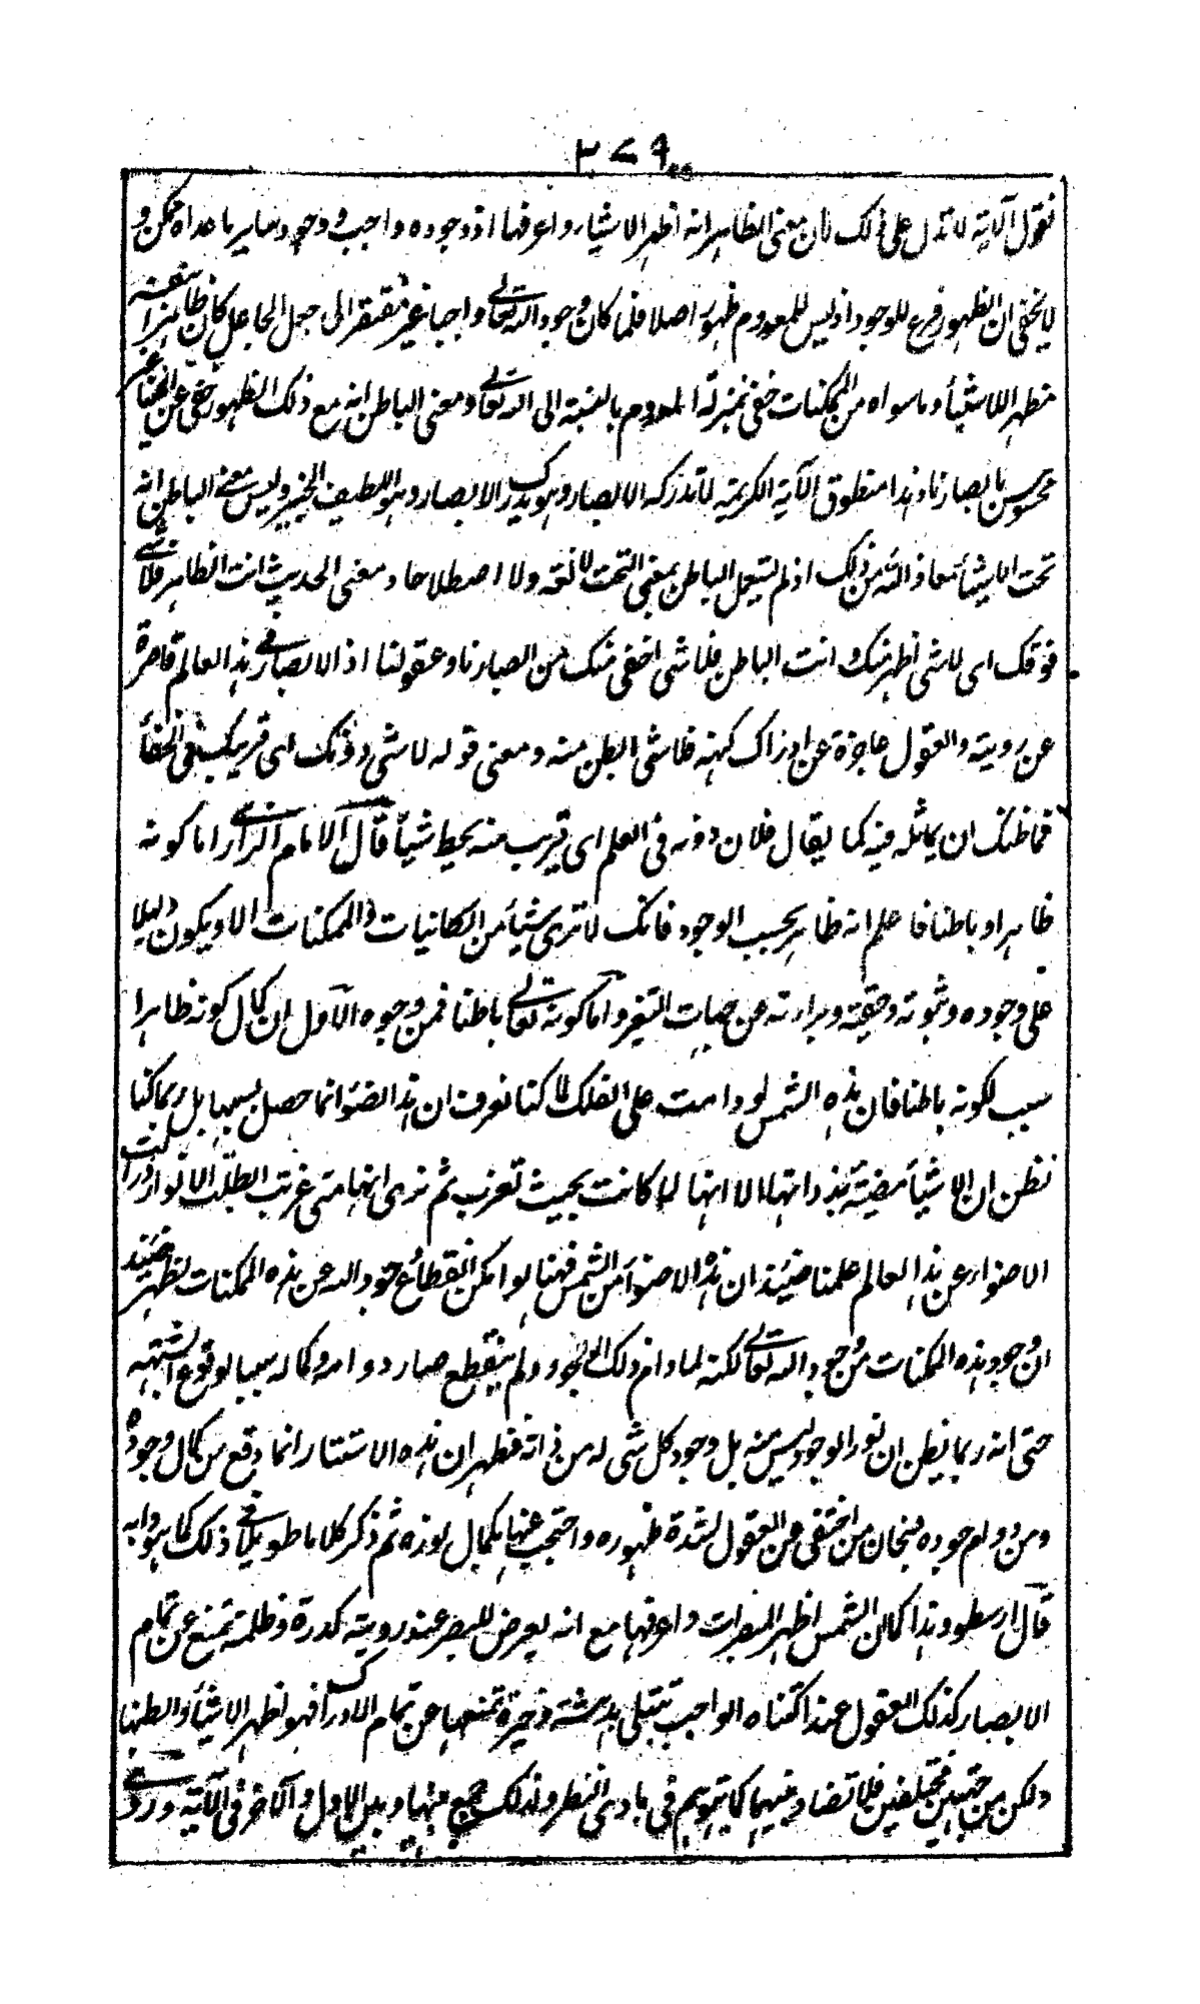 ٣٧٩
نقول الآية لا تدل على ذلك لان معنى الظاهر انه اظهر الاشياء واعرفها اذ وجوده واجب ووجود سائر ما عداه ممكن و
لا يخفى ان الظهور فرع للوجود اذ ليس للمعدوم ظهور اصلا فلما كان وجود الله تعالى واجبا غير مفتقر الى جعل الجاعل كان ظاهرا بنفسه
مظهر اللاشياء وما سواه من الممكنات خفى بمنزلة المعدوم بالنسبة الى الله تعالى ومعنى الباطن انه مع ذلك الظهور خفى عن اعيننا غير
محسوس بابصارنا وهذا منطوق الآية الكريمة لا تدركه الابصار وهو يدرك الابصار وهو اللطيف الخبير وليس معنى الباطن انه
تحت الاشياء معاذ الله من ذلك اذ لم يستعمل الباطن بمعنى التحت لا لغة ولا اصطلاحا ومعنى الحديث انت الظاهر فلا شئ
فوقك اى لا شئ اظهر منك وانت الباطن فلا شئ اخفى منك من ابصارنا وعقولنا اذ الابصار فى هذا العالم قاصرة
عن رويته والعقول عاجزة عن ادراك كنهه فلا شئ ابطن منه ومعنى قوله لا شئ دونك اى قريبك فى الخفأ
فما ظنك ان يماثله فيه كما يقال فلان دونه فى العلم اى قريب منه يحيط شيأ قال الامام الرازى اما كونه
ظاهرا وباطنا فاعلم انه ظاهر بحسب الوجود فانك لا ترى شيأ من الكائنات والممكنات الا ويكون دليلا
على وجوده وثبوته وحقيقته وبراءته عن جهات التغير واما كونه تعالى باطنا فمن وجوه الاول ان كمال كونه ظاهرا
سبب لكونه باطنا فان هذه الشمس لو دامت على الفلك لما كنا نعرف ان هذا الضوء انما حصل بسببها بل ربما كنا
نظن ان الاشيأ مضيئة بذواتها الا انها لما كانت بحيث تغرب ثم نرى انها متى غربت ابطلت الانوار وزالت
الاضواء عن هذا العالم علمنا حينئذ ان هذه الاضوأ من الشمس فههنا لو امكن انقطاع وجود الله عن هذه الممكنات لظهر حينئذ
ان وجود هذه الممكنات من وجود الله تعالى لكنه لما دام ذلك الجود ولم ينقطع صار دوامه وكماله سببا لوقوع الشبهة
حتى انه ربما يظن ان نور الوجود ليس منه بل وجود كل شئ له من ذاته فظهر ان هذه الاستتار انما وقع من كمال وجوده
ومن دوام جوده فسبحان من اختفى عن العقول لشدة ظهوره واحتجب عنها بكمال نوره ثم ذكر كلاما طويلا فى ذلك كما هو دابه
قال ارسطو وهذا كما ان الشمس اظهر المبصرات واعرفها مع انه يعرض للبصر عند رويته كدرة وظلمة تمنع عن تمام
الابصار كذلك العقول عند اكتناه الواجب تبتلى بدهشة وحيرة تمنعها عن تمام الادراك فهو اظهر الاشيأ وابطنها
ولكن من جهتين مختلفين فلا تضاد بينهما كما يتوهم فى بادى النظر ولذلك جمع بينهما وبين الاول والآخر فى الآية وروى